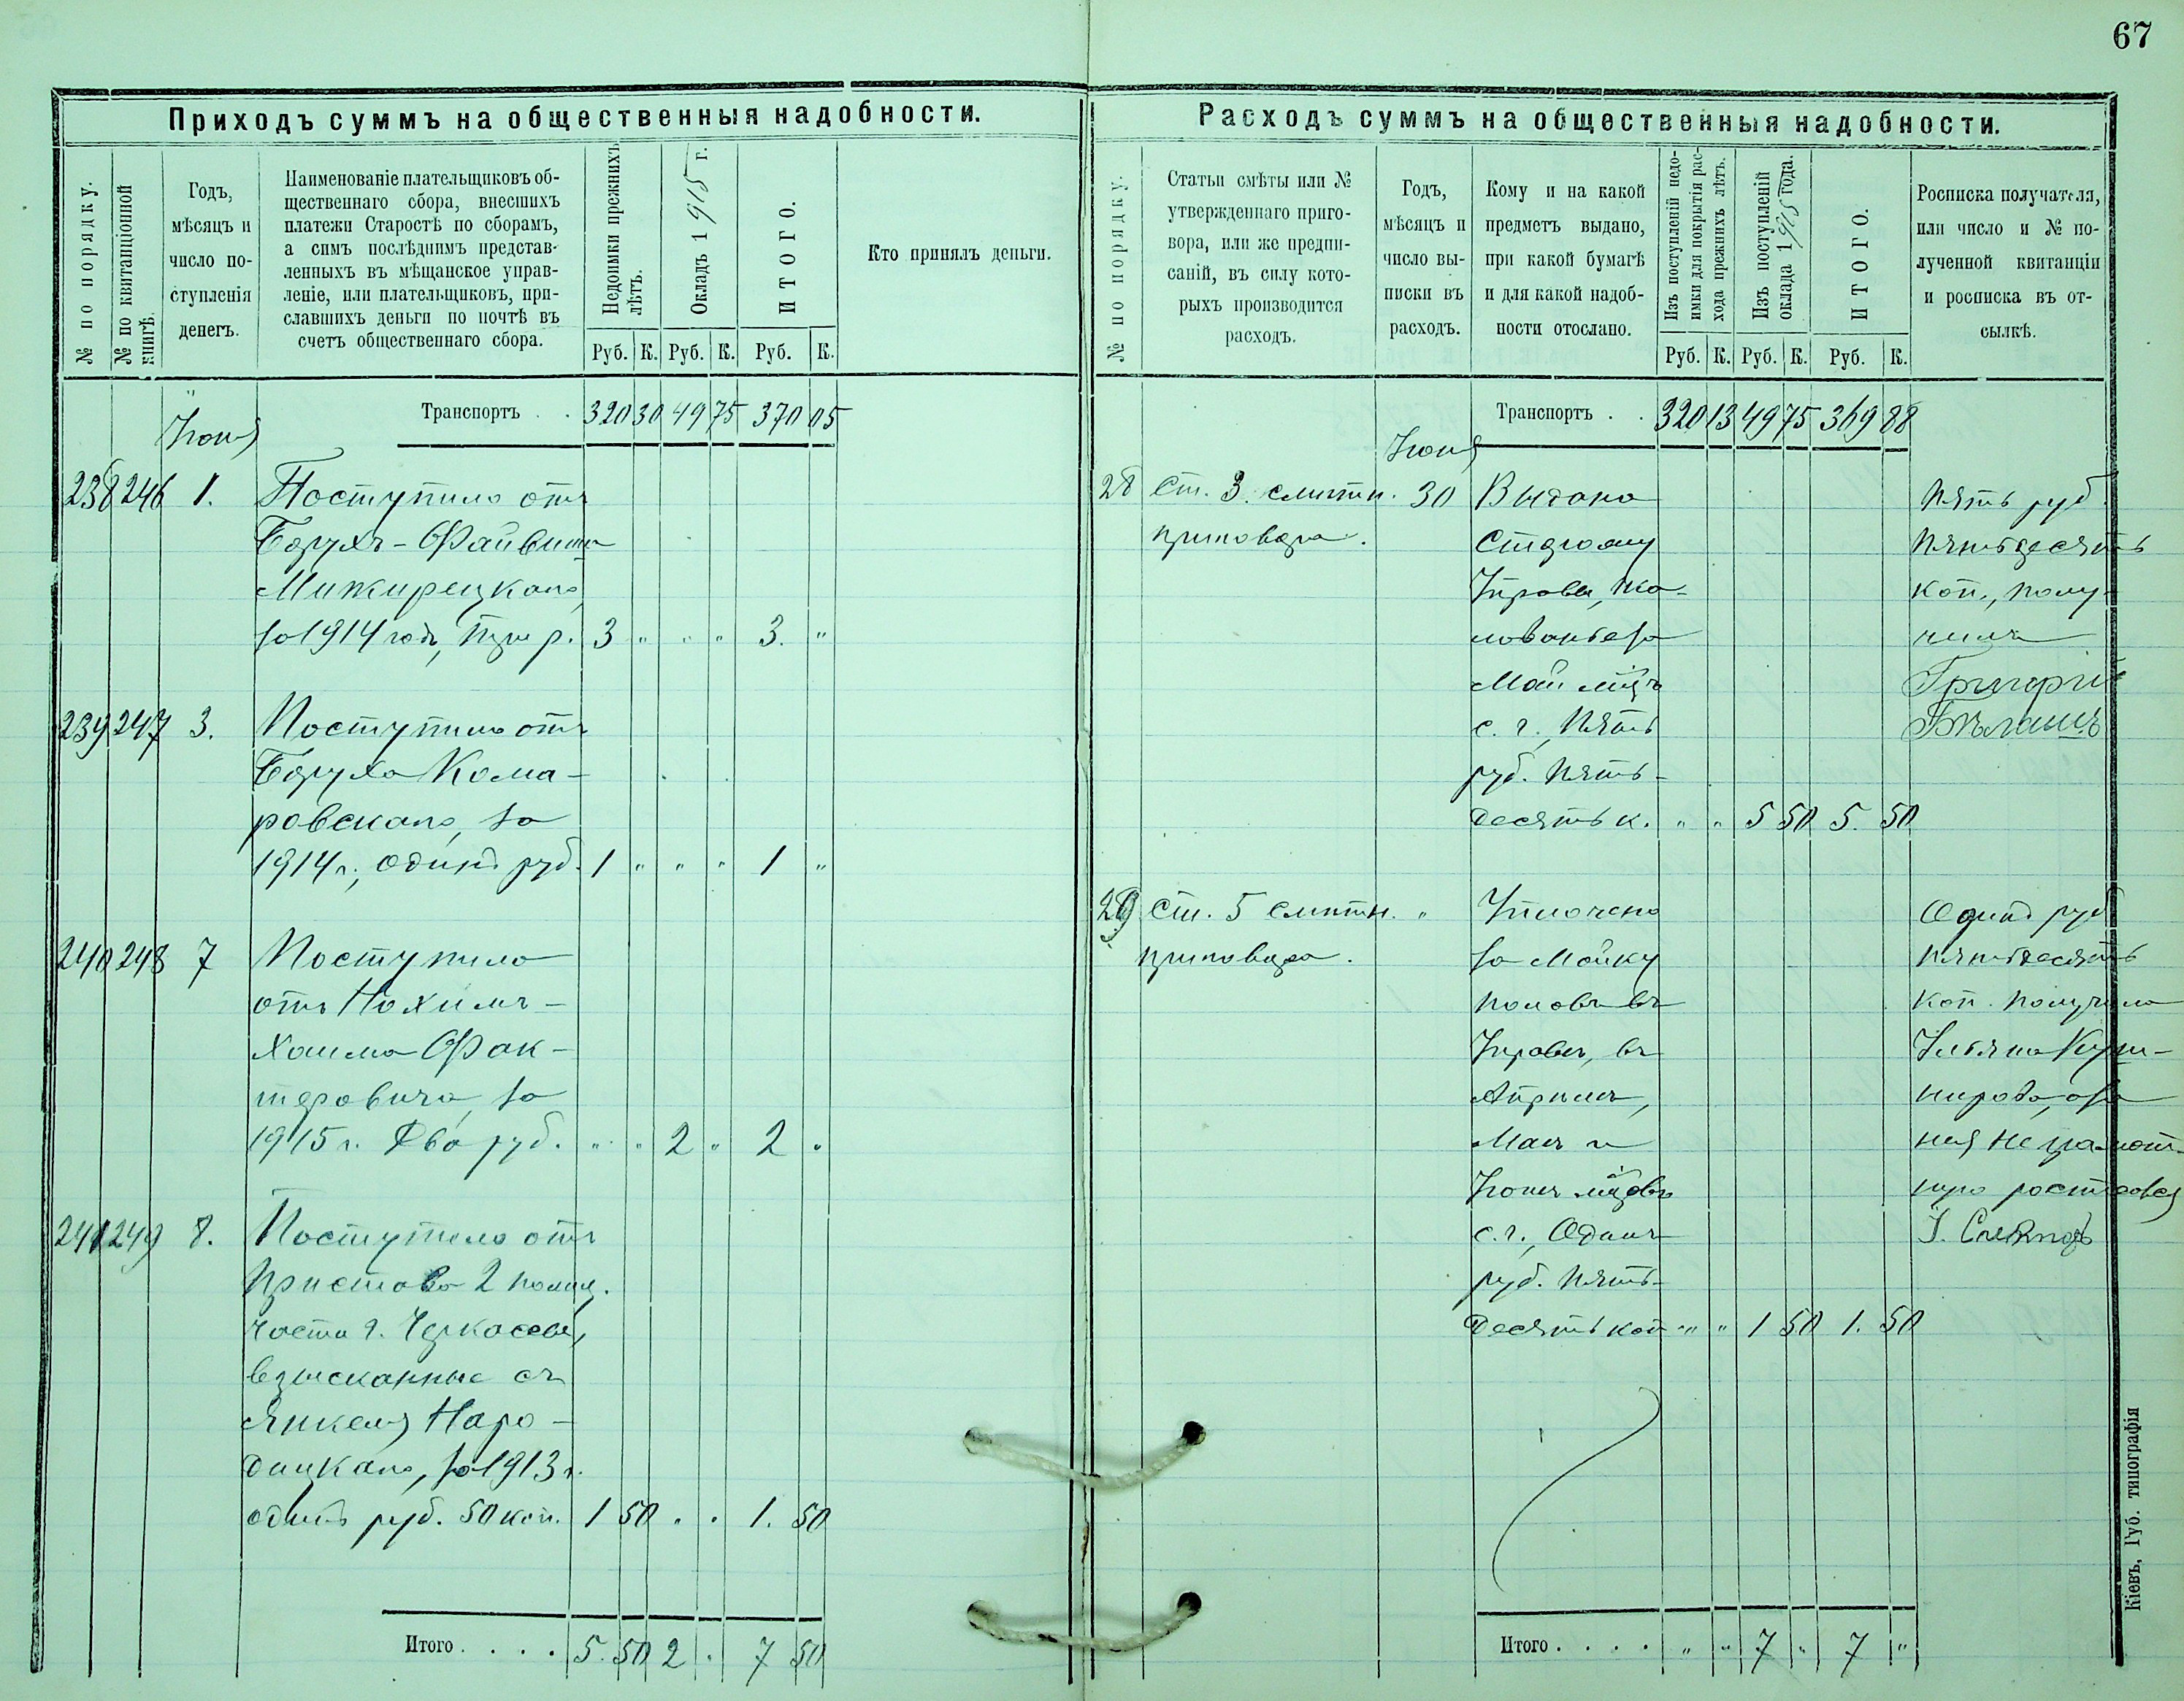 67
Приходъ суммъ на общественныя надобности.
№ по порядку.
№ по квитанціонной
книгѣ.
Годъ,
мѣсяцъ и
число по-
ступленія
денегъ.
Наименованіе плательщиковъ об-
щественнаго сбора, внесшихъ
платежи Старостѣ по сборамъ,
а симъ послѣднимъ представ-
ленныхъ въ мѣщанское управ-
леніе, или плательщиковъ, при-
славшихъ деньги по почтѣ въ
счетъ общественнаго сбора.
Недоимки прежнихъ
лѣтъ.
Окладъ 1915 г.
ИТОГО.
Руб. К. Руб. К. Руб. К.
Кто принялъ деньги.
Транспортъ . . 320 30 49 75 370 05
Іюня
238 246 1. Поступило отъ
Борухъ-Файвиша
Мижирецкаго,
за 1914 годъ, три р. 3 " " " 3. "
239 247 3. Поступило отъ
Боруха Кома-
ровскаго, за
1914 г., одинъ руб. 1 " " " 1 "
240 248 7 Поступило
отъ Нохимъ-
Хаима Фак-
торовича, за
1915 г. Два руб. " " 2 " 2 "
241 249 8. Поступило отъ
Пристава 2 полиц.
части г. Черкассы,
взысканные съ
Янкеля Наро-
дицкаго, за 1913 г.
одинъ руб. 50 коп. 1 50 " " 1. 50
Итого . . . . 5. 50 2 " 7 50
Расходъ суммъ на общественныя надобности.
№ по порядку.
Статьи смѣты или №
утвержденнаго приго-
вора, или же предпи-
саній, въ силу кото-
рыхъ производится
расходъ.
Годъ,
мѣсяцъ и
число вы-
писки въ
расходъ.
Кому и на какой
предметъ выдано,
при какой бумагѣ
и для какой надоб-
ности отослано.
Изъ поступленій недо-
имки для покрытія рас-
хода прежнихъ лѣтъ.
Изъ поступленій
оклада 1915 года.
ИТОГО.
Руб. К. Руб. К. Руб. К.
Росписка получателя,
или число и № по-
лученной квитанціи
и росписка въ от-
сылкѣ.
Транспортъ . . 320 13 49 75 369 88
Іюня
28 Ст. 3. смѣтн. 30 Выдано Пять руб.
приговора. Сторожу Пятьдесятъ
Управы, жа- коп., полу-
лованье за чилъ
Май мѣц Григорій
с. г., Пять
руб. Пять-
десятъ к. " " 5 50 5. 50
29 Ст. 5 смѣтн. " Уплочено Одинъ руб
приговора. за Мойку пятьдесятъ
половъ въ коп. получила
Управѣ, въ Ульяна Куш-
Апрѣлѣ, нирова, а за
Маѣ и нея неграмот-
Іюнѣ мѣц
с. г., Одинъ
руб. Пять-
десятъ коп. " " 1 50 1. 50
Итого . . . . " " 7 " 7 "
Кіевъ, Губ. типографія